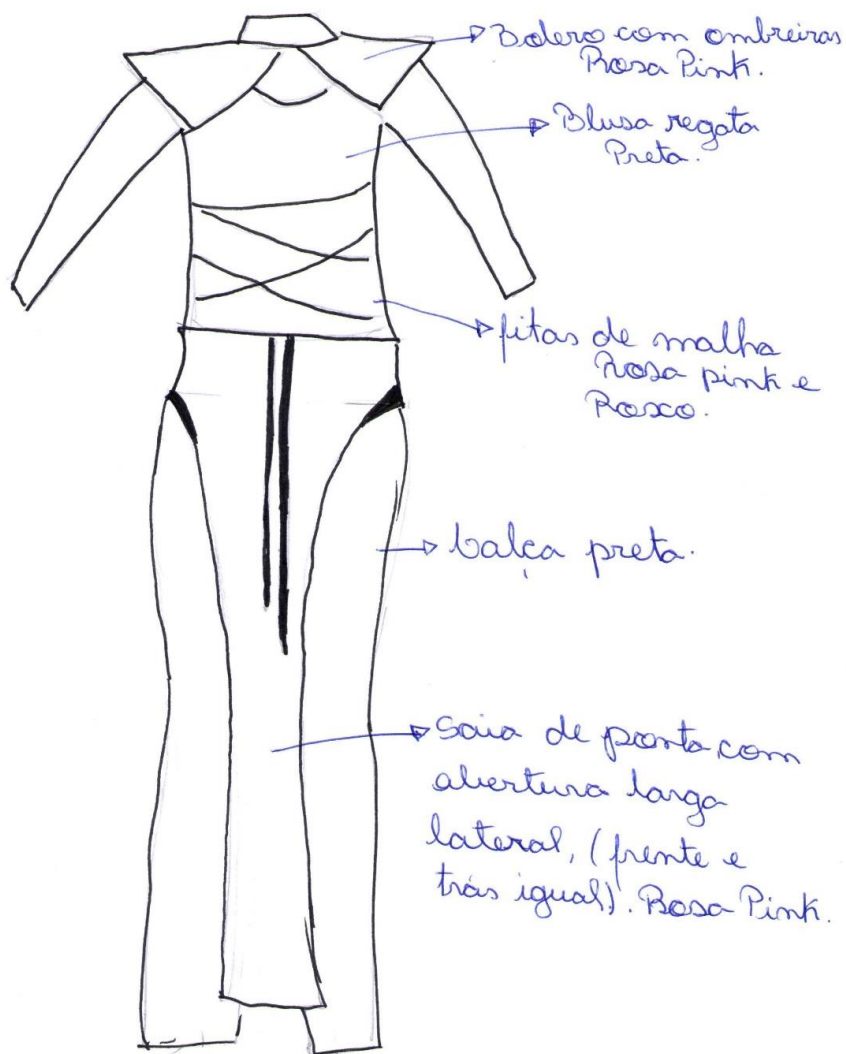 Bolero com ombreiras
Rosa Pink.
Blusa regata
Preta.
fitas de malha
Rosa pink e
Roxo.
Calça preta.
Saia de ponta com
abertura larga
lateral, (frente e
trás igual). Rosa Pink.